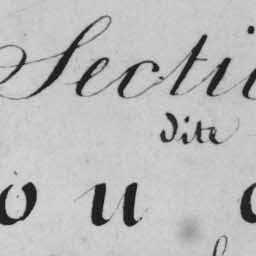 Secti
dite
ou